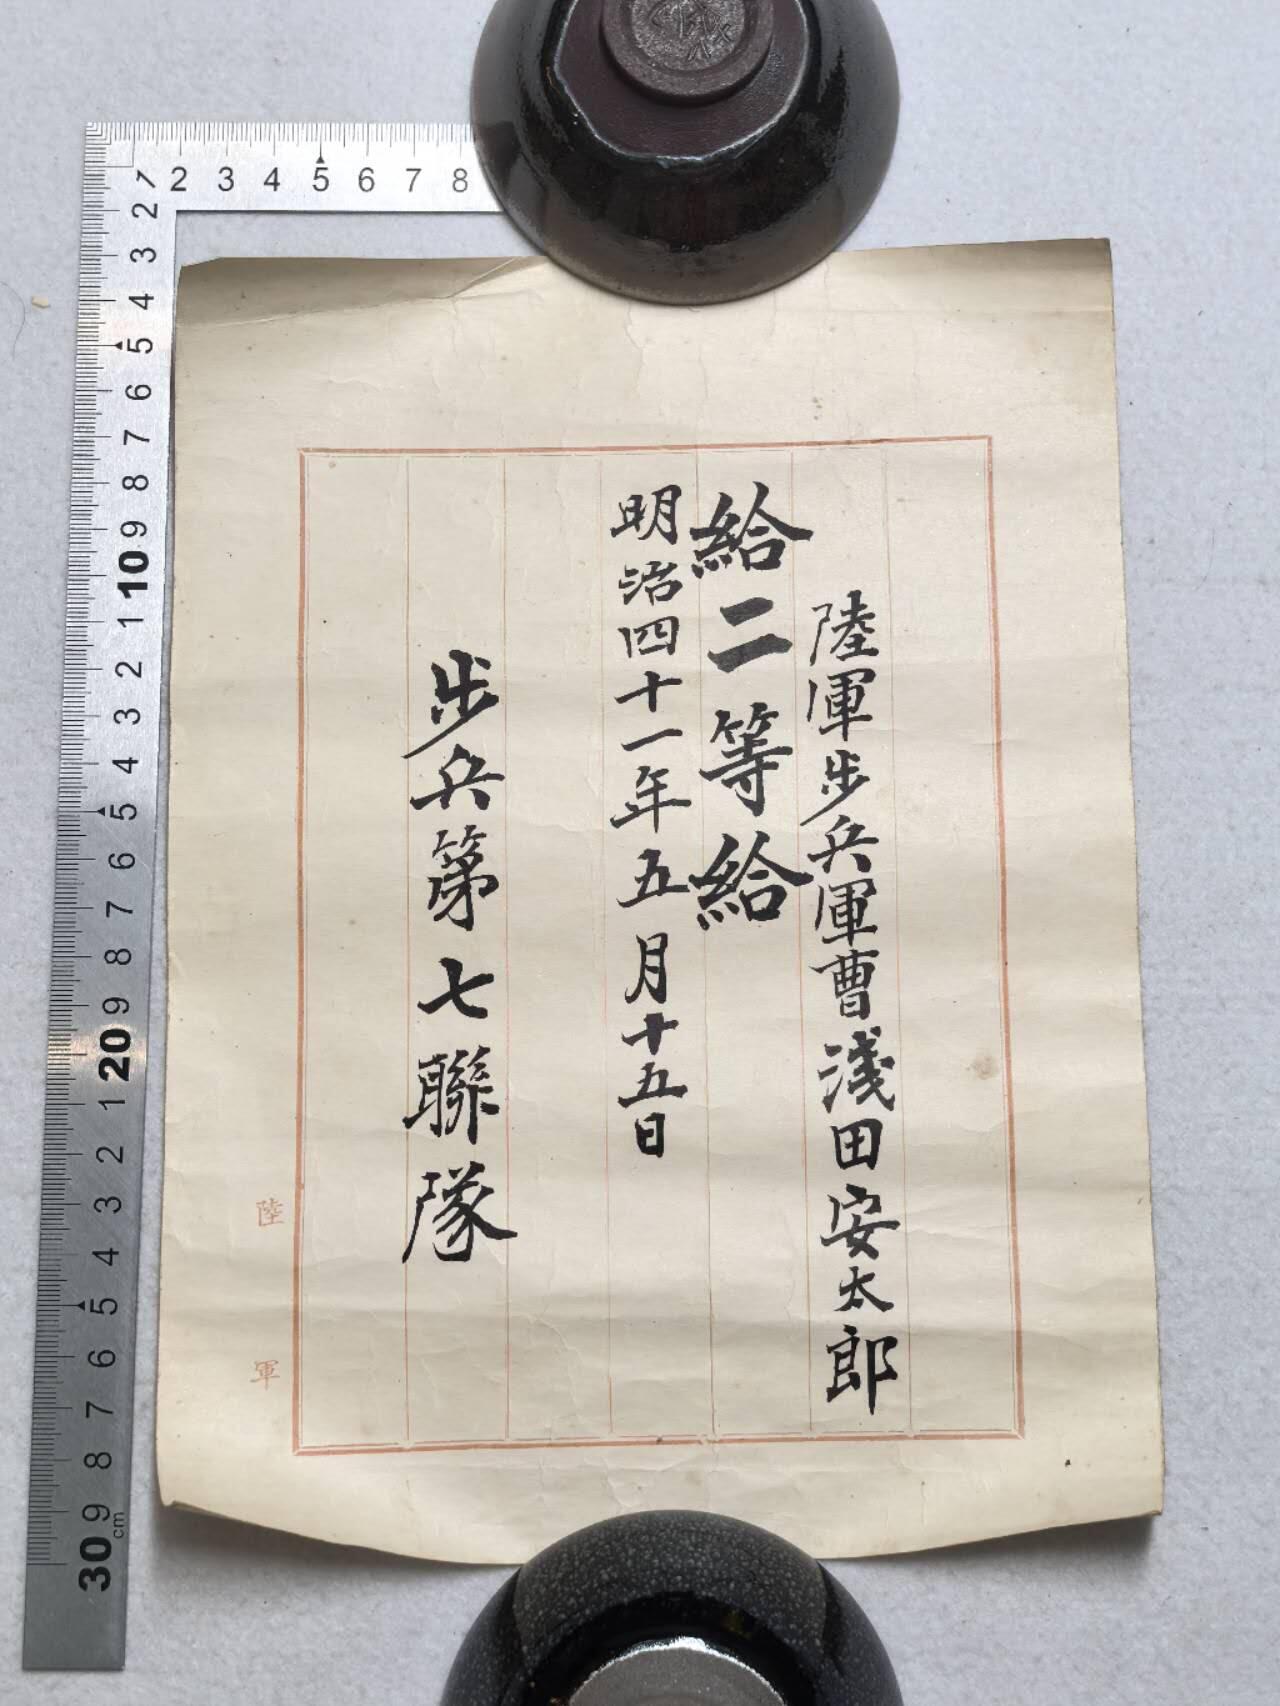 陸軍步兵軍曹淺田安太郎
給二等給
明治四十一年五月十五日
步兵第七聯隊
陸軍
1 2 3 4 5 6 7 8
2 3 4 5 6 7 8 9 10 1 2 3 4 5 6 7 8 9 20 1 2 3 4 5 6 7 8 9 30 cm